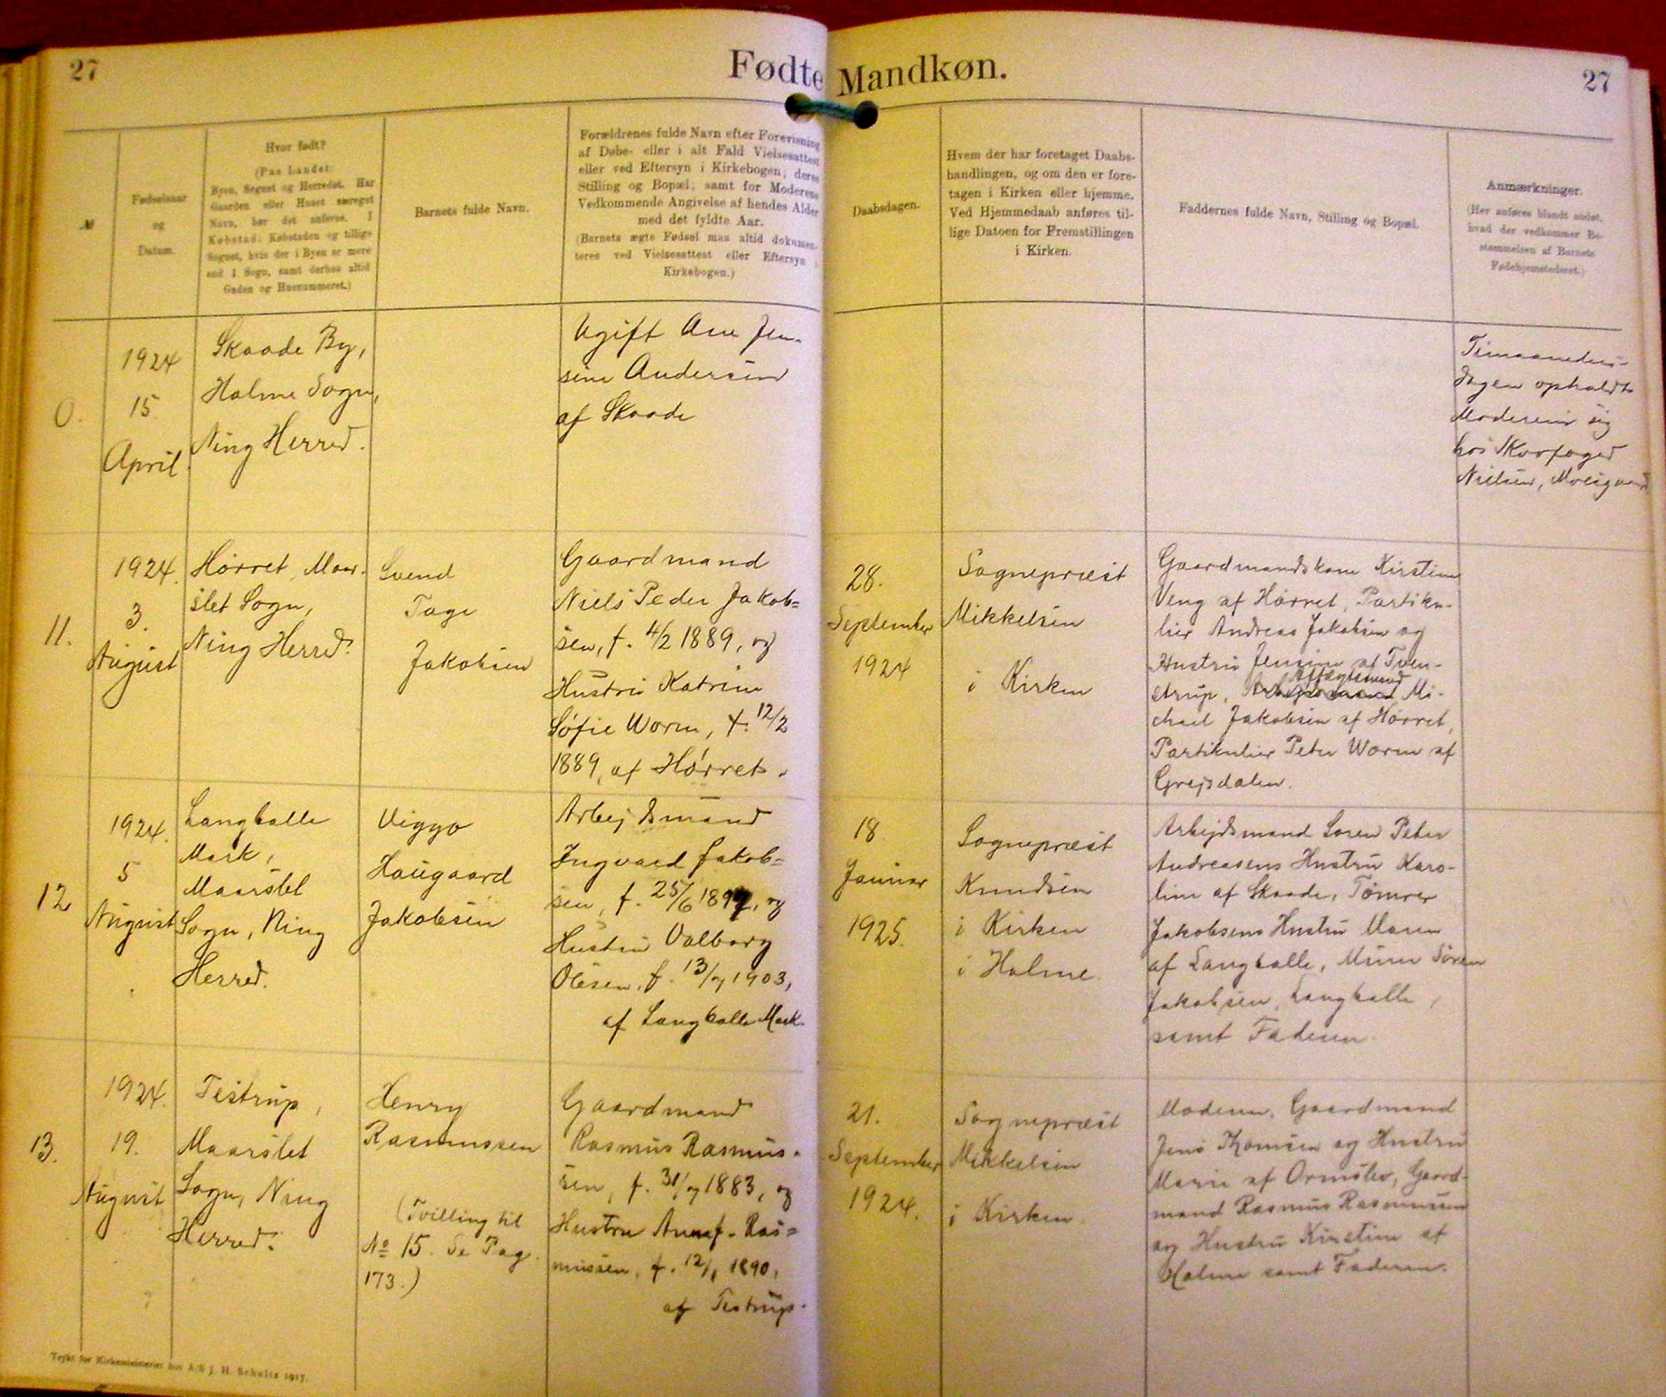 27
Fødte Mandkøn.
27
№
Fødselsaar
og
Datum.
Hvor født?
(Paa Landet:
Byen, Sognet og Herredet. Har
Gaarden eller Huset særeget
Navn, bør det anføres. I
Købstad: Købstaden og tillige
Sognet, hvis der i Byen er mere
end 1 Sogn, samt derhos altid
Gaden og Husnummeret.)
Barnets fulde Navn.
Forældrenes fulde Navn efter Forevisning
af Døbe- eller i alt Fald Vielsesattest
eller ved Eftersyn i Kirkebogen; deres
Stilling og Bopæl; samt for Moderens
Vedkommende Angivelse af hendes Alder
med det fyldte Aar.
(Barnets ægte Fødsel maa altid dokumen-
teres ved Vielsesattest eller Eftersyn i
Kirkebogen.)
Daabsdagen.
Hvem der har foretaget Daabs-
handlingen, og om den er fore-
tagen i Kirken eller hjemme.
Ved Hjemmedaab anføres til-
lige Datoen for Fremstillingen
i Kirken.
Faddernes fulde Navn, Stilling og Bopæl.
Anmærkninger.
(Her anføres blandt andet,
hvad der vedkommer Be-
stemmelsen af Barnets
Fødehjemstederet.)
0.
1924
15
April
Skaade By,
Holme Sogn,
Ning Herred.
Ugift Ane Jen-
sine Andersen
af Skaade
Timaaneders-
dagen opholdt
Moderen sig
hos Skovfoged
Nielsen, Moesgaard
11.
1924.
3.
August
Hørret, Maar-
slet Sogn,
Ning Herred.
Svend
Tage
Jakobsen
Gaardmand
Niels Peder Jakob=
sen, f. 4/2 1889, og
Hustru Katrine
Sofie Worm, f. 12/2
1889, af Hørret.
28.
September
1924
Sognepræst
Mikkelsen
i Kirken
Gaardmandskone Kirstine
Veng af Hørret, Partiku-
lier Andreas Jakobsen og
Hustru Jensine af Tven-
strup, Aftægtsmand Mi-
chael Jakobsen af Hørret,
Partikulier Peter Worm af
Grejsdalen.
12
1924.
5
August
Langballe
Mark,
Maarslet
Sogn, Ning
Herred.
Viggo
Haugaard
Jakobsen
Arbejdsmand
Ingvard Jakob=
sen, f. 25/6 1897, og
Hustru Valborg
Olesen, f. 13/7 1903,
af Langballe Mark.
18
Januar
1925.
Sognepræst
Knudsen
i Kirken
i Holme.
Arbejdsmand Søren Peter
Andreasens Hustru Karo-
line af Skaade, Tømrer
Jakobsens Hustru Maren
af Langballe, Murer Søren
Jakobsen, Langballe,
samt Faderen.
13.
1924.
19.
August
Testrup,
Maarslet
Sogn, Ning
Herred.
Henry
Rasmussen
(Tvilling til
№ 15. Se Pag.
173.)
Gaardmand
Rasmus Rasmus-
sen, f. 31/7 1883, og
Hustru Anna f. Ras=
mussen, f. 12/1 1890,
af Testrup.
21.
September
1924.
Sognepræst
Mikkelsen
i Kirken.
Moderen, Gaardmand
Jens Thomsen og Hustru
Marie af Ormslev, Gaard-
mand Rasmus Rasmussen
og Hustru Kirstine af
Holme samt Faderen.
Trykt for Kirkeministeriet hos A/S J. H. Schultz 1917.